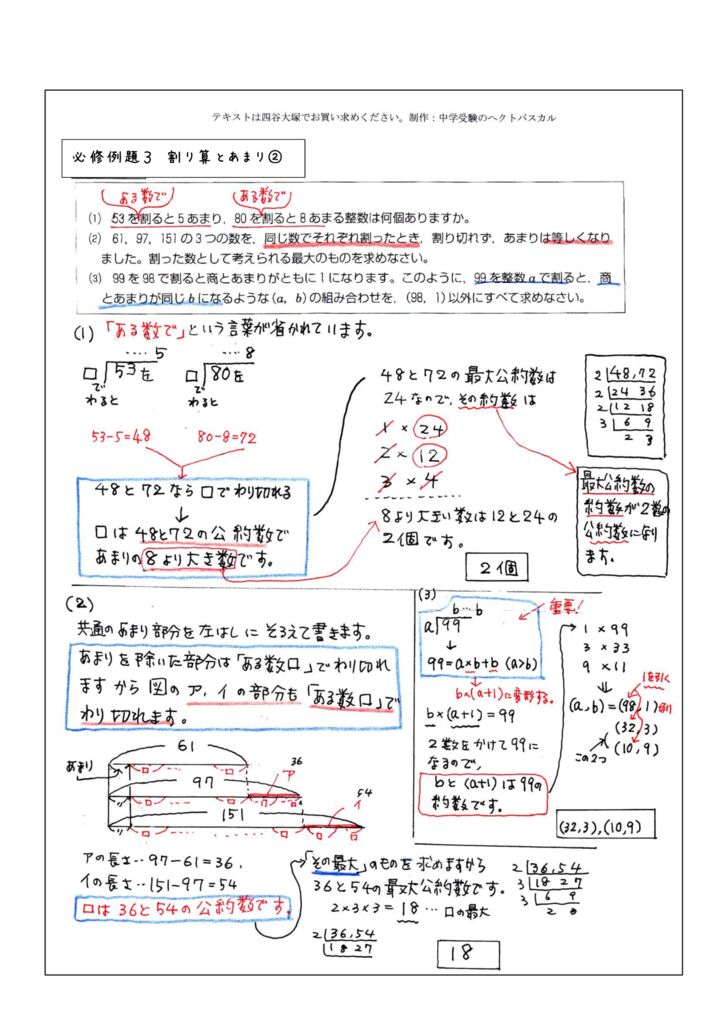 テキストは四谷大塚でお買い求めください。制作：中学受験のヘクトパスカル
必修例題3 割り算とあまり②
ある数で ある数で
(1) 53を割ると5あまり，80を割ると8あまる整数は何個ありますか。
(2) 61，97，151の3つの数を，同じ数でそれぞれ割ったとき，割り切れず，あまりは等しくなり
ました。割った数として考えられる最大のものを求めなさい。
(3) 99を98で割ると商とあまりがともに1になります。このように，99を整数aで割ると，商
とあまりが同じbになるような(a，b)の組み合わせを，(98，1)以外にすべて求めなさい。
(1) 「ある数で」という言葉が省かれています。
‥‥ 5
□)53を
で
わると
‥‥ 8
□)80を
で
わると
53-5=48 80-8=72
48と72なら□でわり切れる
↓
□は48と72の公約数で
あまりの8より大き数です。
48と72の最大公約数は
24なので、その約数は
1 × 24
2 × 12
3 × 4
8より大きい数は12と24の
2個です。
2個
2)48,72
2)24 36
2)12 18
3)6 9
2 3
最大公約数の
約数が2数の
公約数になり
ます。
(2)
共通のあまり部分を左はしにそろえて書きます。
あまりを除いた部分は「ある数□」でわり切れ
ますから図のア,イの部分も「ある数□」で
わり切れます。
61
あまり
36
97
ア
54
151
イ
アの長さ‥97-61=36,
イの長さ‥151-97=54
□は36と54の公約数です。
「その最大」のものを求めますから
36と54の最大公約数です。
2×3×3=18‥□の最大
2)36,54
18 27
2)36,54
3)18 27
3)6 9
2 3
18
(3)
b‥b
a)99
↓
99=a×b+b (a>b)
重要!
b×(a+1)に変形する。
b×(a+1)=99
2数をかけて99に
なるので,
bと(a+1)は99の
約数です。
1 × 99
3 × 33
9 × 11
⇓
1を引く
(a,b)=(98,1)
(32,3)
(10,9)
この2つ
(32,3),(10,9)